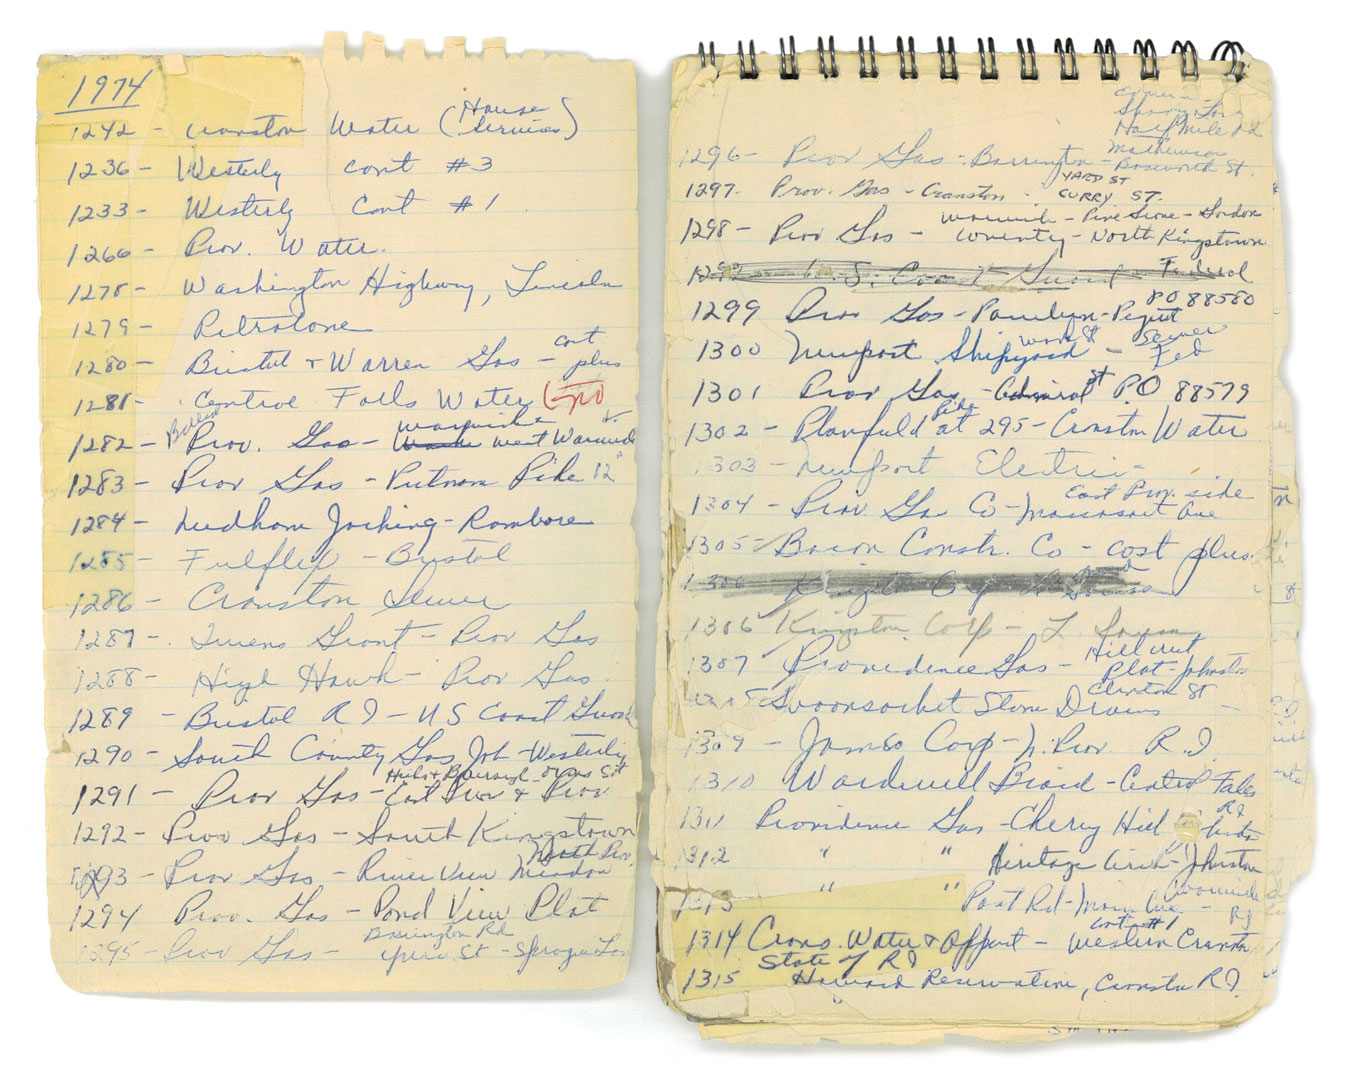 1974
1242 - Cranston Water (House Services)
1236 - Westerly cont #3
1233 - Westerly Cont #1
1266 - Prov. Water.
1278 - Washington Highway, Lincoln
1279 - Petrolane
1280 - Bristol + Warren Gas - cost plus
1281 - Central Falls Water
1282 - Prov. Gas - Warwick + West Warwick
1283 - Prov Gas - Putnam Pike 12"
1284 - Needham Jacking - Ramboree
1285 - Fulflex - Bristol
1286 - Cranston Sewer
1287 - Twens Grant - Prov Gas
1288 - High Hawk - Prov Gas.
1289 - Bristol RI - US Coast Guard
1290 - South County Gas Job - Westerly
1291 - Prov Gas - East Prov & Prov
1292 - Prov Gas - South Kingstown
1293 - Prov Gas - River View Meadow North Prov.
1294 Prov. Gas - Pond View Plat
Barrington Rd
1295 - Prov Gas - St - Sprague
Half Mile Rd
Mathewson
1296 - Prov Gas - Barrington - Bosworth St.
YARD ST
1297 - Prov. Gas - Cranston - CURRY ST.
Warwick - Pine Grove - Gordon
1298 - Prov Gas - Coventry - North Kingstown
1299 U.S. Coast Guard Federal
1299 Prov Gas - - PO 88580
1300 Newport Shipyard - Sewer Fed
1301 Prov Gas - Admiral St P.O 88579
1302 - Planfield Pike at 295 - Cranston Water
1303 - Newport Electric -
East Prov. side
1304 - Prov Gas Co - Massasoit Ave
1305 - Bacon Constr. Co - cost plus
1306
1306 Kingston Corp - L.
Hill crest
1307 Providence Gas - Plat - Johnston
Clinton St
Woonsocket Storm Drains -
1309 - Jamco Corp - N. Prov R.I.
1310 Wardwell Braid - Central Falls RI
1311 Providence Gas - Cherry Hill
1312 " " Heritage Circle - Johnston
1313 " " Post Rd - Main Ave - Warwick RI
Cont #1
1314 Crans. Water & Offport - Western Cranston
State of RI
1315 Howard Reservation, Cranston RI.